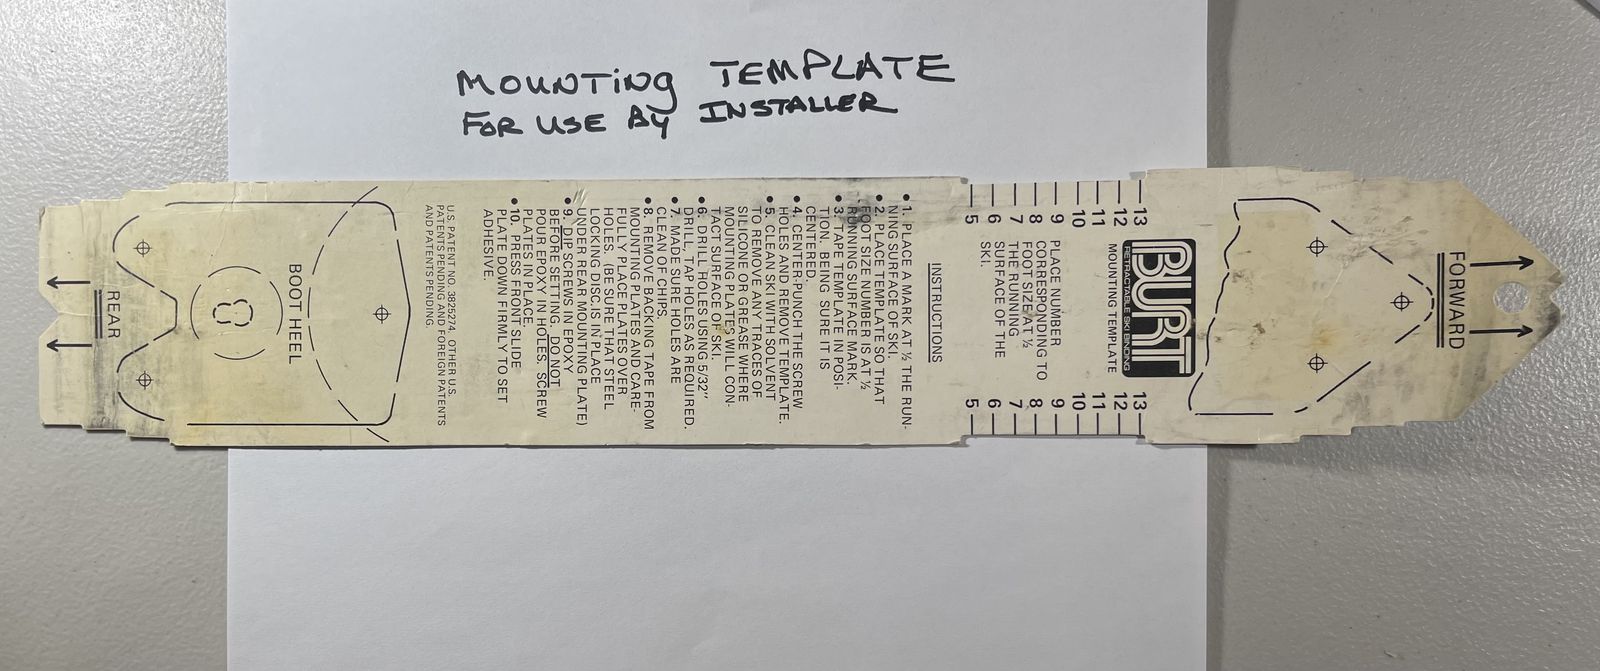 MOUNTiNG TEMPLATE
FOR USE BY INSTALLER
FORWARD
BURT
RETRACTABLE SKI BINDING
MOUNTING TEMPLATE
13 13
12 12
11 11
10 10
9 9
8 8
7 7
6 6
5 5
PLACE NUMBER
CORRESPONDING TO
FOOT SIZE AT ½
THE RUNNING
SURFACE OF THE
SKI.
INSTRUCTIONS
• 1. PLACE A MARK AT ½ THE RUN-
NING SURFACE OF SKI.
• 2. PLACE TEMPLATE SO THAT
FOOT SIZE NUMBER IS AT ½
RUNNING SURFACE MARK.
• 3. TAPE TEMPLATE IN POSI-
TION. BEING SURE IT IS
CENTERED.
• 4. CENTER-PUNCH THE SCREW
HOLES AND REMOVE TEMPLATE.
• 5. CLEAN SKI WITH SOLVENT
TO REMOVE ANY TRACES OF
SILICONE OR GREASE WHERE
MOUNTING PLATES WILL CON-
TACT SURFACE OF SKI.
• 6. DRILL HOLES USING 5/32"
DRILL, TAP HOLES AS REQUIRED.
• 7. MADE SURE HOLES ARE
CLEAN OF CHIPS.
• 8. REMOVE BACKING TAPE FROM
MOUNTING PLATES AND CARE-
FULLY PLACE PLATES OVER
HOLES. (BE SURE THAT STEEL
LOCKING DISC IS IN PLACE
UNDER REAR MOUNTING PLATE)
• 9. DIP SCREWS IN EPOXY
BEFORE SETTING. DO NOT
POUR EPOXY IN HOLES, SCREW
PLATES IN PLACE.
• 10. PRESS FRONT SLIDE
PLATE DOWN FIRMLY TO SET
ADHESIVE.
U.S. PATENT NO. 3825274, OTHER U.S.
PATENTS PENDING AND FOREIGN PATENTS
AND PATENTS PENDING.
BOOT HEEL
REAR